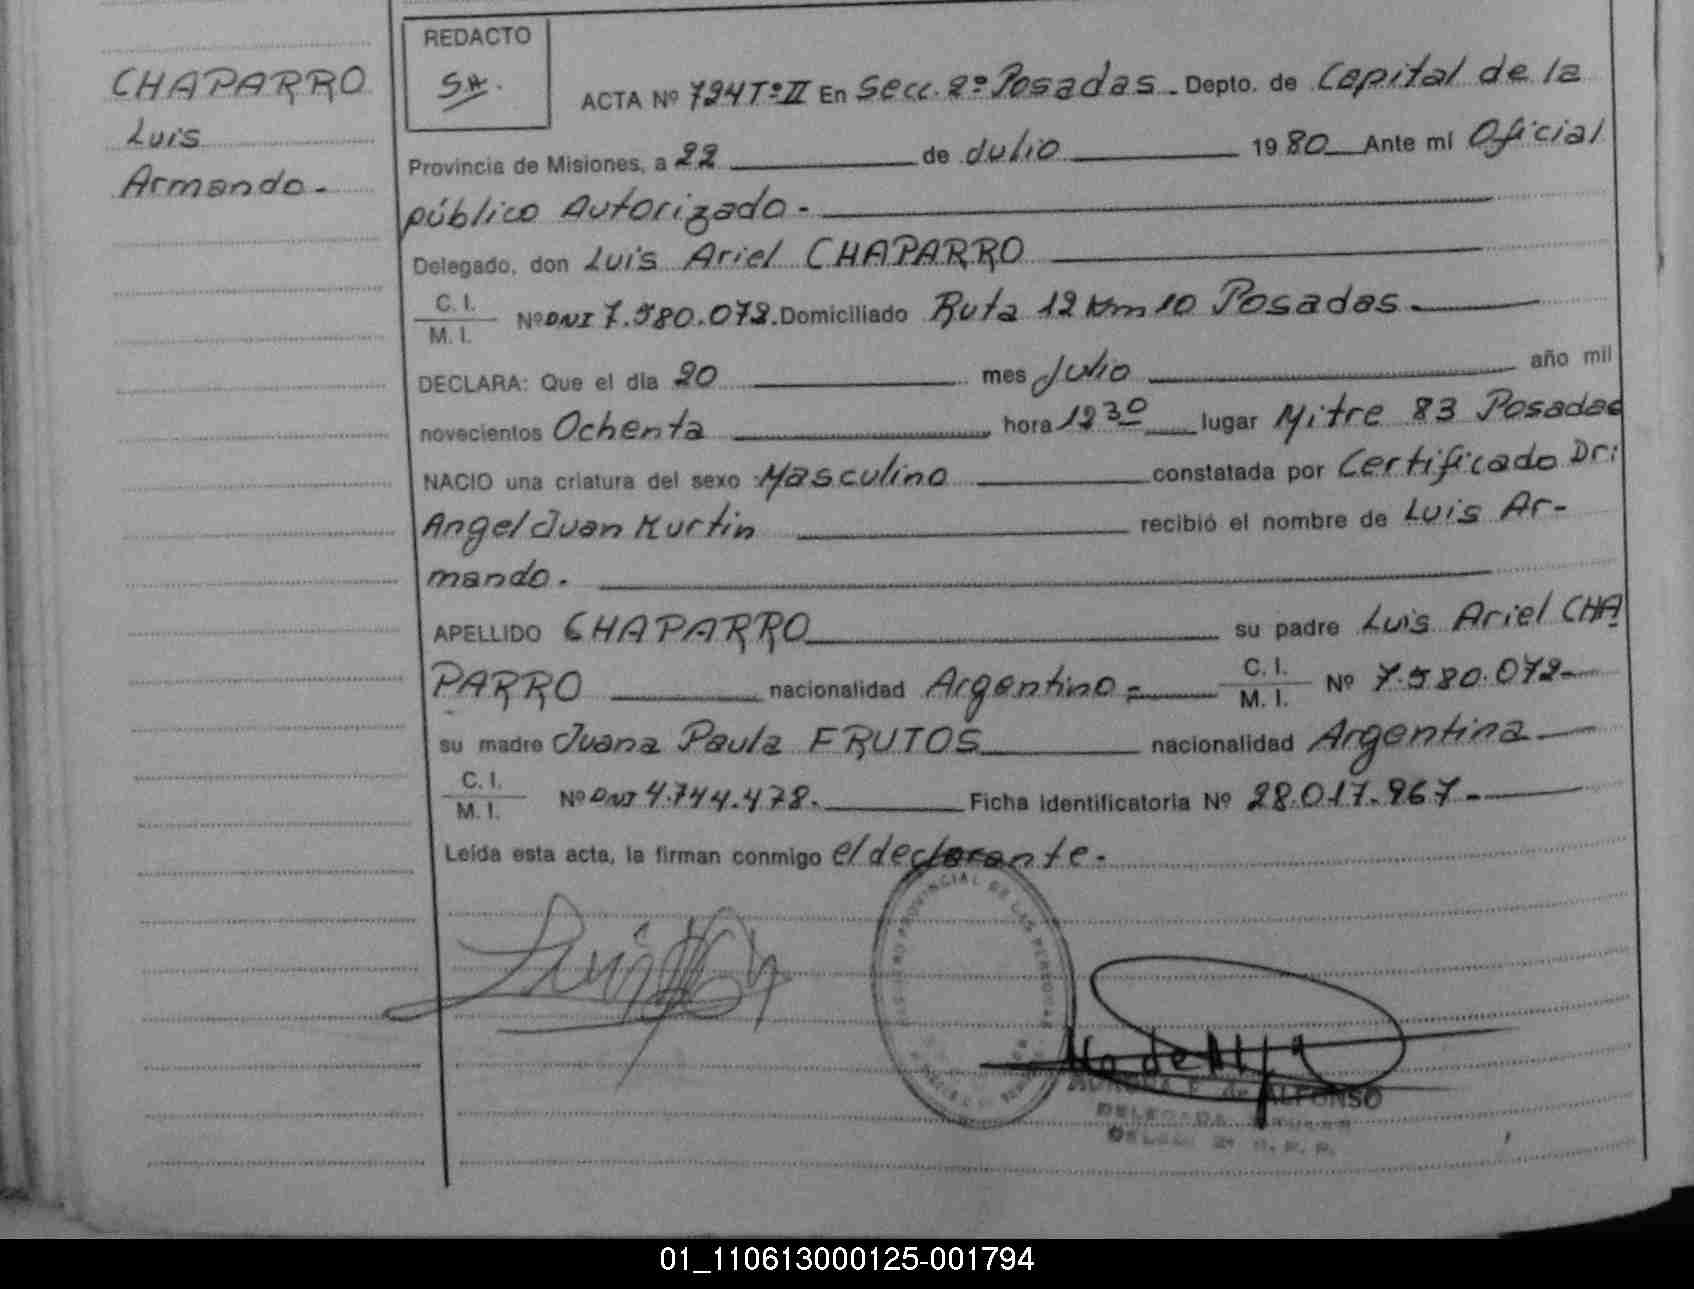 CHAPARRO
Luis
Armando.
REDACTO
ACTA Nº 794 Tº II En Secc. 2º Posadas. Depto. de Capital de la
Provincia de Misiones, a 22 de Julio 1980 Ante mí Oficial
público Autorizado.
Delegado, don Luis Ariel CHAPARRO
C. I.
M. I. Nº DNI 7.580.072. Domiciliado Ruta 12 Km 10 Posadas
DECLARA: Que el día 20 mes Julio año mil
novecientos Ochenta hora 12 30 lugar Mitre 83 Posadas
NACIO una criatura del sexo Masculino constatada por Certificado Dr:
Angel Juan Kurtin recibió el nombre de Luis Ar-
mando.
APELLIDO CHAPARRO su padre Luis Ariel CHA
PARRO nacionalidad Argentino C. I.
M. I. Nº 7.580.072
su madre Juana Paula FRUTOS nacionalidad Argentina
C. I.
M. I. Nº DNI 4.744.478. Ficha identificatoria Nº 28.017.967.
Leída esta acta, la firman conmigo el declarante.
PROVINCIAL DE LAS PERSONAS
de ALFONSO
DELEGADA
01_110613000125-001794